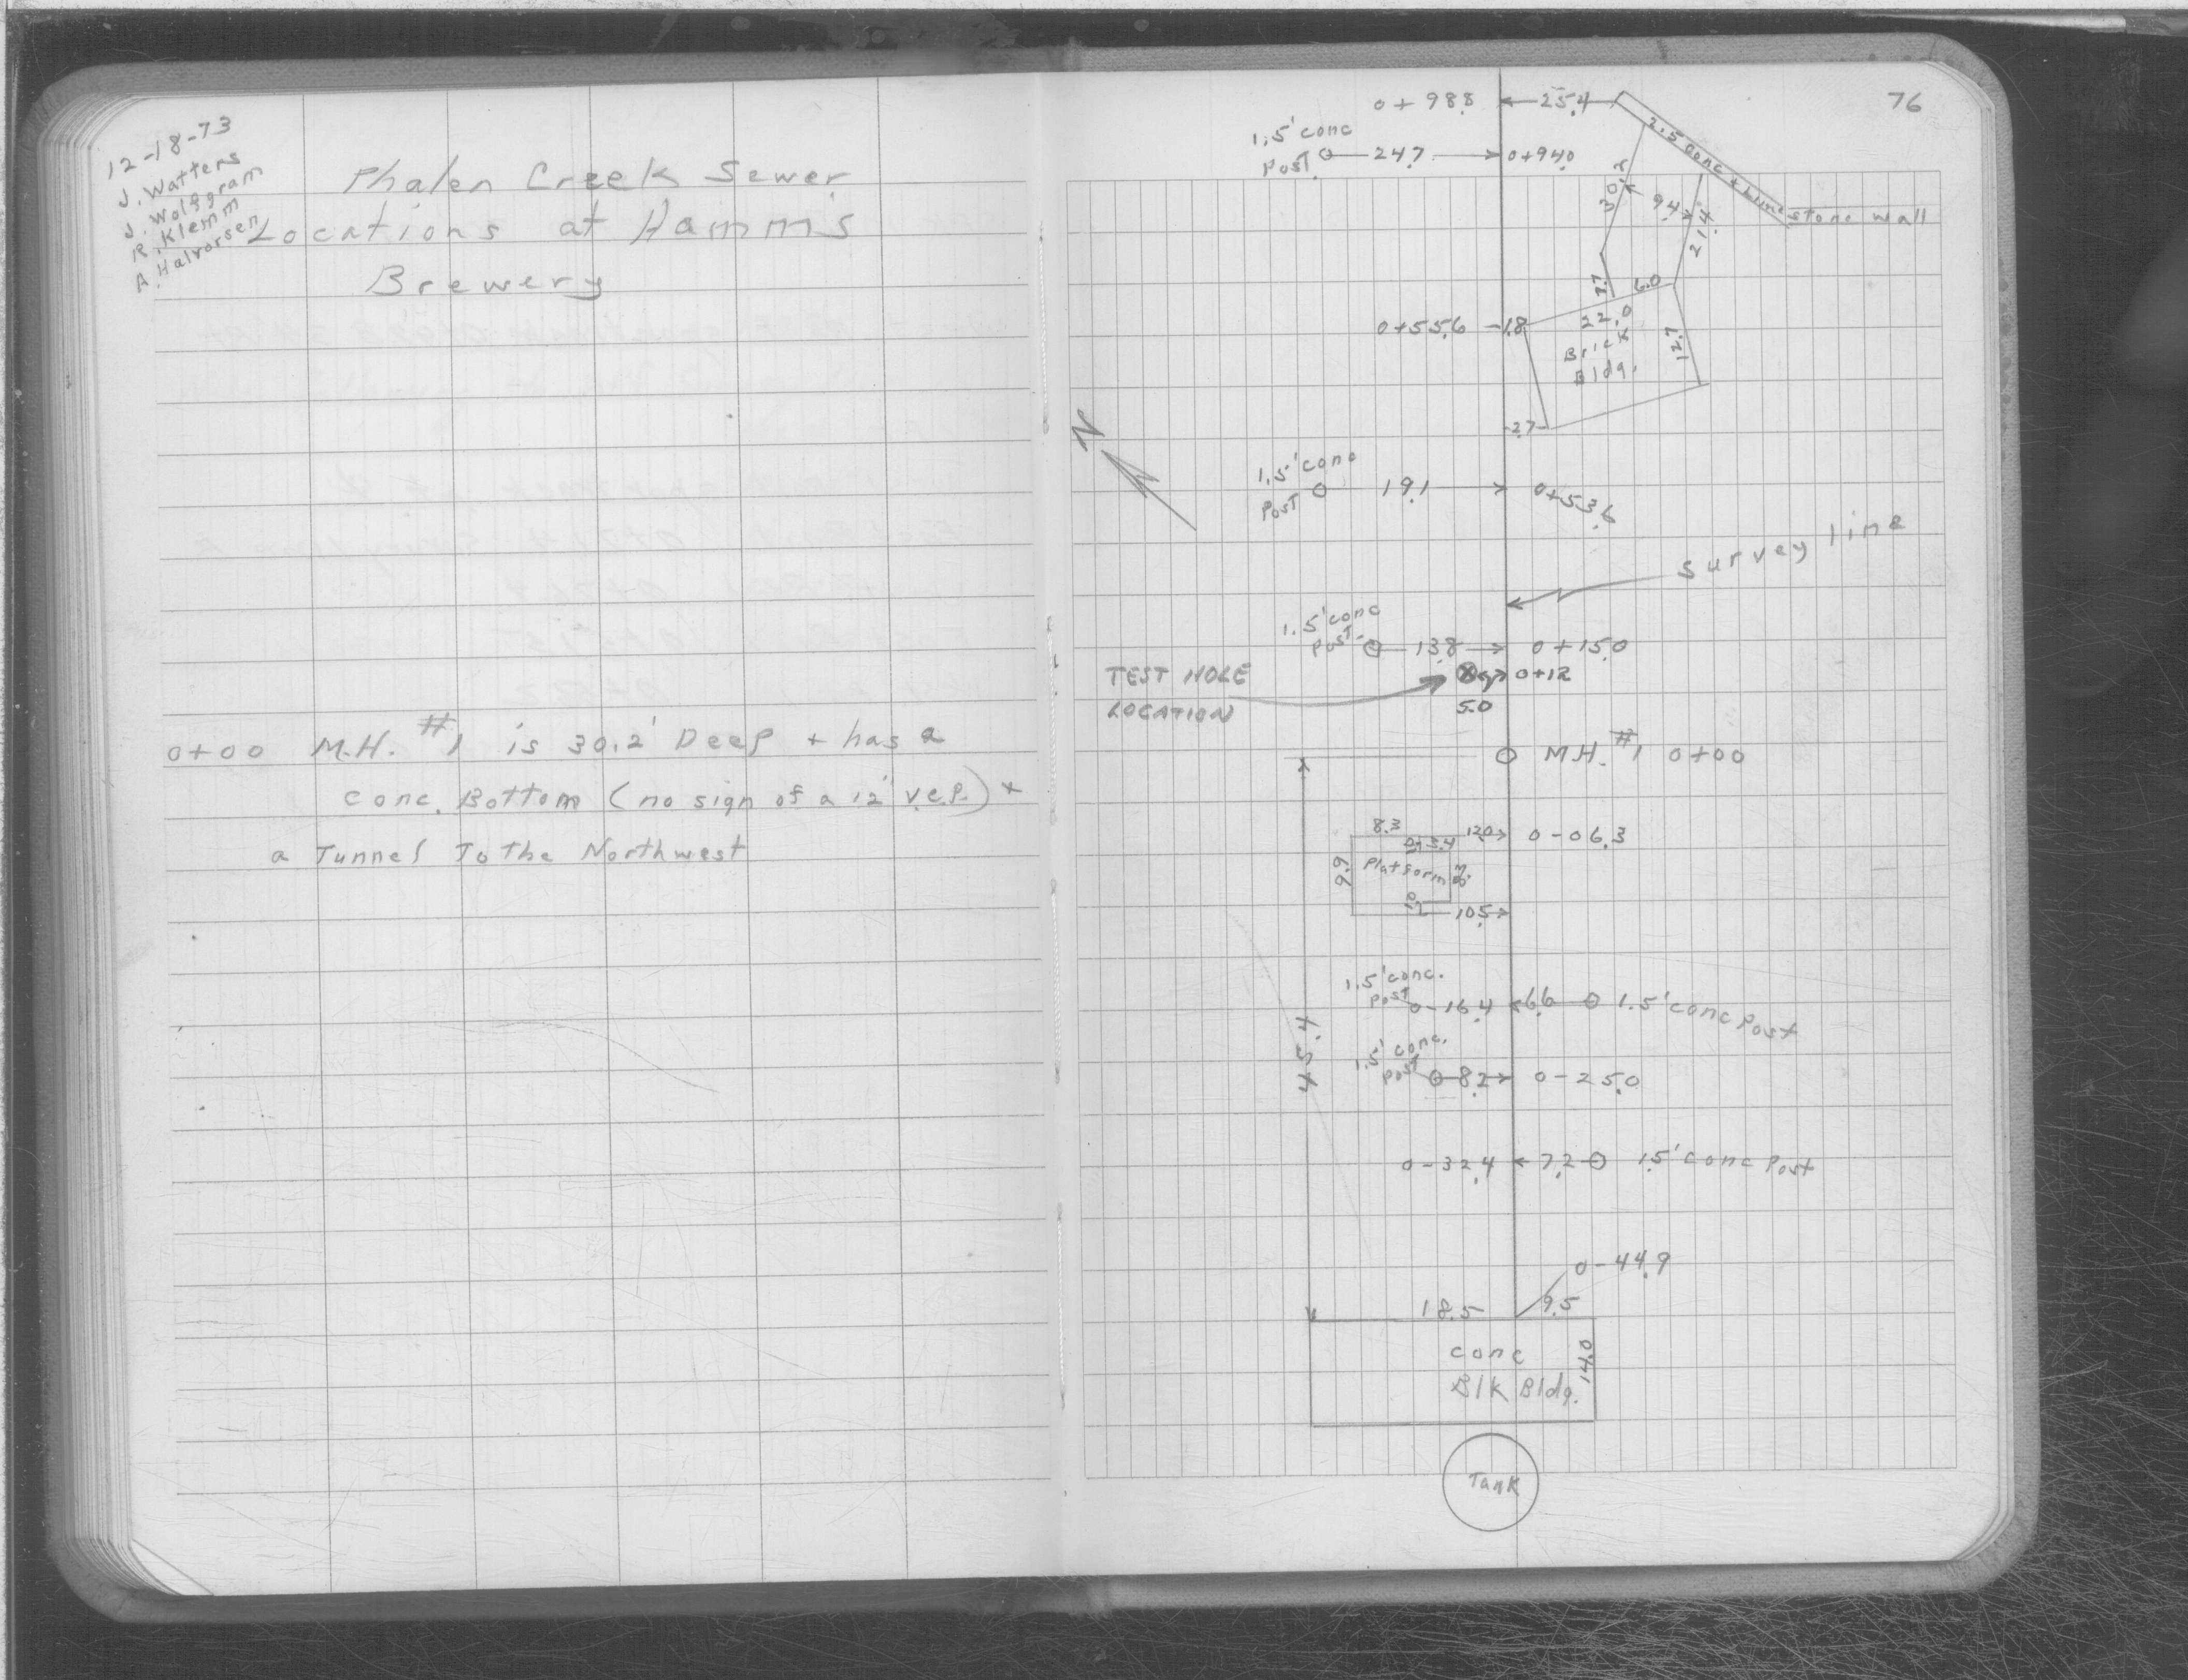 12-18-73
J. Watters
J. Wolfgram
R. Klemm
A. Halvorsen
Phalen Creek Sewer
Locations at Hamm's
Brewery
0+00 M.H. #1 is 30.2' Deep + has a
conc. Bottom (no sign of a 12" V.C.P.) +
a Tunnel To the Northwest
76
0+98.8 25.4
1.5' conc
Post 24.7 0+94.0
2.5 conc + Lime stone wall
30.2
9.4
21.4
7.7 6.0
0+55.6 1.8 22.0
Brick
Bldg.
12.7
2.7
N
1.5' conc
Post 19.1 0+53.6
survey line
1.5' conc
Post 13.8 0+15.0
TEST HOLE
LOCATION
0+12
5.0
M.H. #1 0+00
8.3 12.0 0-06.3
3.4
9.9 Platform
10.5
1.5' conc.
Post 0-16.4 6.6 1.5' conc Post
45.4
1.5' conc.
Post 8.2 0-25.0
0-32.4 7.2 1.5' conc Post
0-44.9
18.5 9.5
conc
Blk Bldg.
14.0
Tank